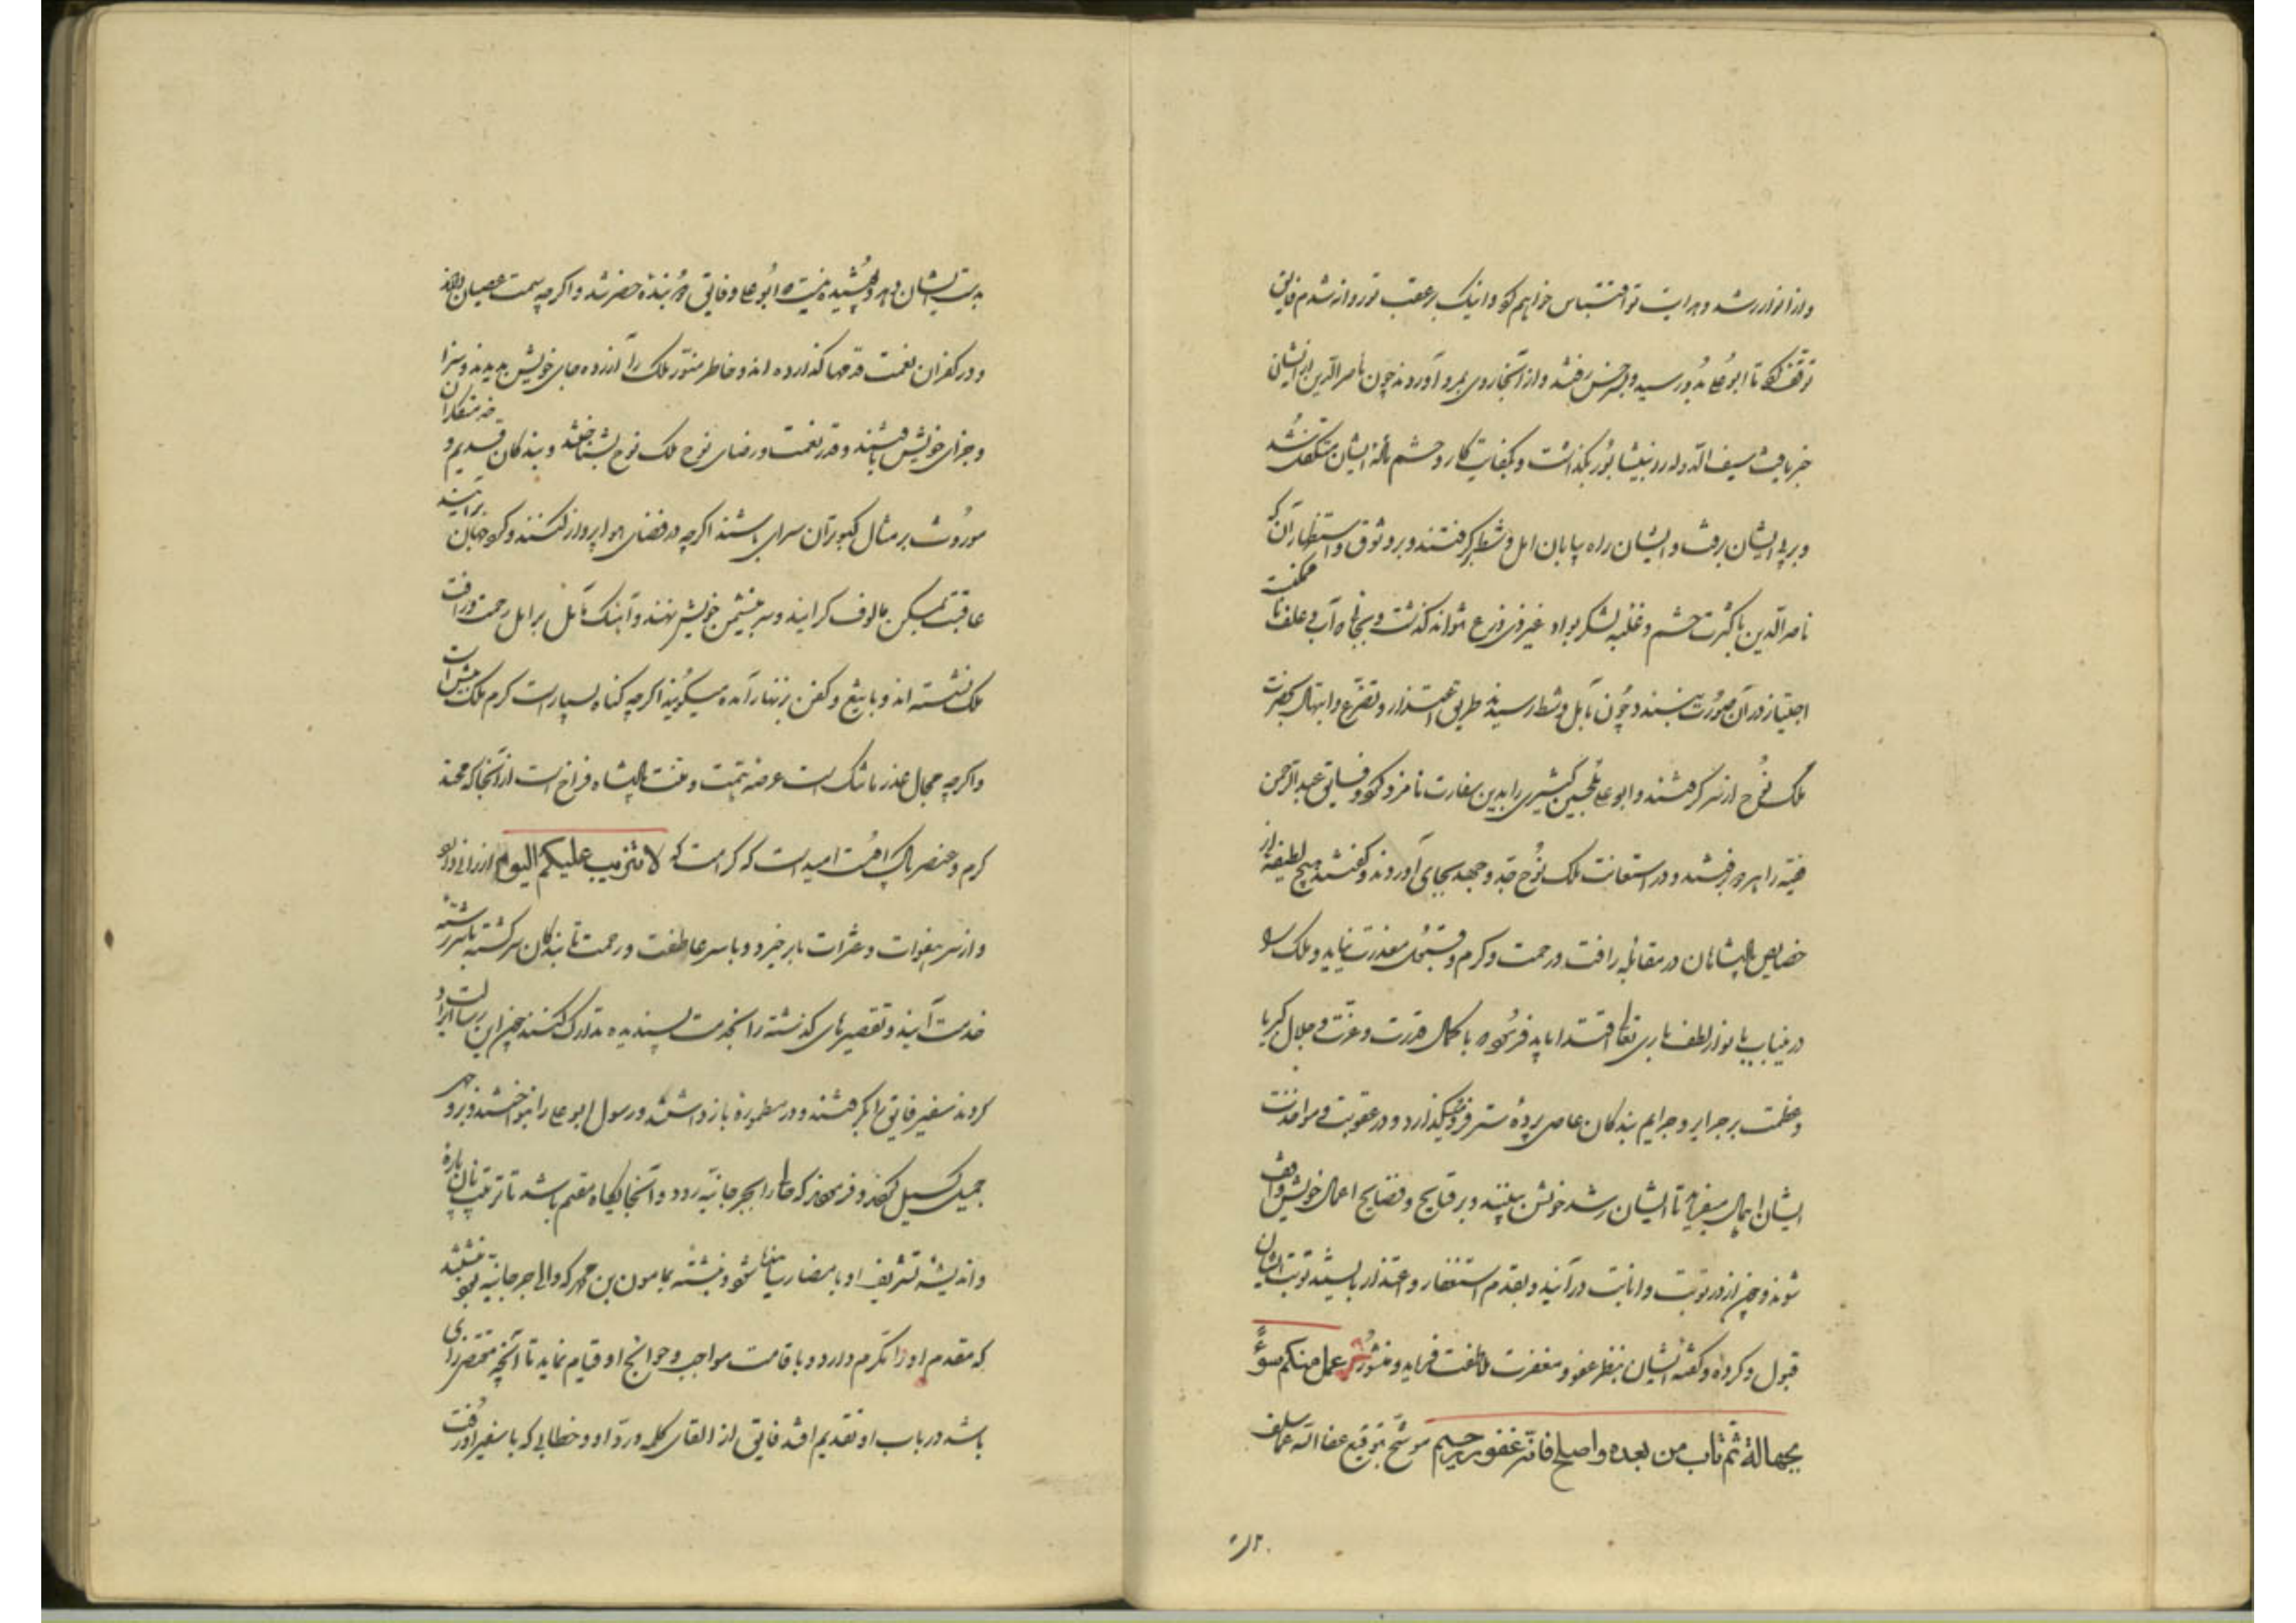 و از انوار رشد و هدایت تو اقتباس خواهم کرد و اینک بر عقب تو روانه شدم فایق
توقف کرد تا ابوعلی بدو رسید و بسرخس رفتند و از آنجا روی بمرو آوردند چون ناصرالدین از ایشان
خبر یافت سیف الدوله را در نیشابور بگذاشت و بکفایت کار و حشم مادّه ایشان متکفل شد
و بر پی ایشان برفت و ایشان راه بیابان آمل شط بر گرفتند و بر وثوق و استظهار آن که
ناصرالدین با کثرت حشم و غلبه لشکر بوادی غیر ذی زرع نتواند گذشت و بجایگاه آب و علف ناممکنست
اجتیاز در آن صورت نبندد و چون بآمل شط رسیدند طریق اعتذار و تضرع و ابتهال بحضرت
ملک نوح از سر گرفتند و ابوعلی ابوالحسین کثیری را بدین سفارت نامزد کرد و فایق عبدالرحمن
فقیه را و هر دو برفتند و در استعانت ملک نوح جدّ و جهد بجای آوردند و گفتند هیچ لطیفه از
خصایص پادشاهان در مقابله رافت و رحمت و کرم و قبول معذرت نیاید و ملک را
درین باب بانوار لطف باری تعالی اقتدا باید فرمود که با کمال قدرت و عزت و جلال کبریا
و عظمت بر جرایر و جرایم بندگان عاصی پرده ستر فرو میگذارد و در عقوبت و مواخذت
ایشان امهال میفرماید تا ایشان رشد خویش ببینند و بر قبایح و فضایح اعمال خویش واقف
شوند و چون از در توبت و انابت درآیند و بقدم استغفار و اعتذار بایستند توبت ایشان
قبول و کرده و گفته ایشان بنظر عفو و مغفرت ملاطفت فرماید و منشور من عمل منکم سوءً
بجهالة ثم تاب من بعده و اصلح فانه غفور رحیم موشح بتوقیع عفا الله عما سلف
بدست ایشان دهد و پوشیده نیست که ابوعلی و فایق دو بنده حضرتند و اگرچه سمت عصیان دارند
و در کفران نعمت قدمها گذارده اند و خاطر منور ملک را آزرده جای خویش بدیدند و سزا
و جزای خویش یافتند و قدر نعمت و رضای نوح ملک نوح بشناختند و بندگان قدیم و خدمتکاران
موروث بر مثال کبوتران سرای باشند اگرچه در فضای هوا پرواز کنند و گرد جهان برآیند
عاقبت بمسکن مالوف گرایند و سر بنشیمن خویش نهند و اینک بآمل بر امل رحمت و رافت
ملک نشسته اند و با تیغ و کفن بزنهار آمده میگویند اگرچه گناه بسیارست کرم ملک بیش از آنست
و اگرچه مجال عذر ما تنگ است عرصه همّت و منت پادشاه فراخ است از آنجا که محتد
کرم و عنصر پاک اوست امید است که کرامت که لا تثریب علیکم الیوم ارزانی دارد
و از سر هفوات و عثرات ما برخیزد و با سر عاطفت و رحمت تا بندگان سرگشته با سر رشته
خدمت آیند و تقصیرهای گذشته را بخدمت پسندیده تدارک کنند چون این رسالت ادا
کردند سفیر فایق را بگرفتند و در مطموره بازداشتند و رسول ابوعلی را بنواختند و بر وجهی
جمیل گسیل کردند و فرمودند که حالی را بجرجانیه رود و آنجایگاه مقیم باشد تا ترتیب نان پاره
و اندیشه تشریف او بامضا رسانیده شود و نبشته بمامون بن محمد که والی جرجانیه بود نبشتند
که مقدم او را مکرم دارد و باقامت مواجب و حوایج او قیام نماید تا آنچه مقتضی رای
باشد در باب او تقدیم افتد فایق از القای کلمه و ردّ او و خطابی که با سفیر او رفت